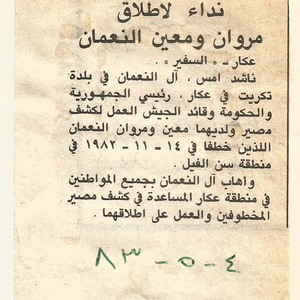 نداء لاطلاق
مروان ومعين النعمان
عكار ـ « السفير » .
ناشد امس ، آل النعمان في بلدة
تكريت في عكار ، رئيسي الجمهورية
والحكومة وقائد الجيش العمل لكشف
مصير ولديهما معين ومروان النعمان
اللذين خطفا في ١٤ - ١١ - ١٩٨٢ في
منطقة سن الفيل .
واهاب آل النعمان بجميع المواطنين
في منطقة عكار المساعدة في كشف مصير
المخطوفين والعمل على اطلاقهما .
٤ - ٥ - ٨٣